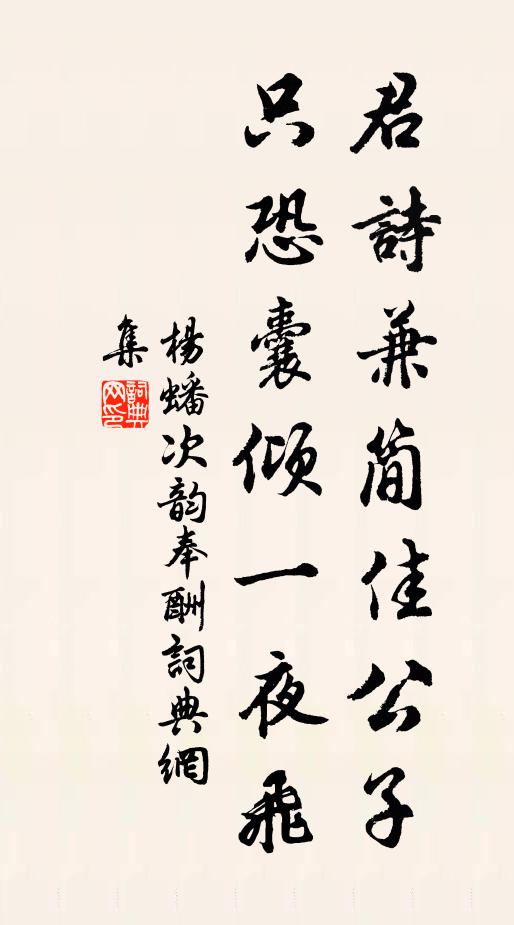 君詩兼簡佳公子
只恐囊傾一夜飛
楊蟠次韵奉酬詞典網
集
詞典
网印